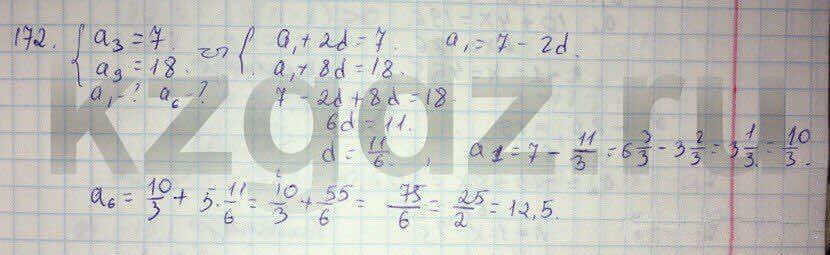 172. { a₃ = 7. ⇔ { a₁ + 2d = 7. a₁ = 7 - 2d.
a₉ = 18. a₁ + 8d = 18.
a₁ - ? a₆ - ? 7 - 2d + 8d = 18.
6d = 11.
d = 11/6. , a₁ = 7 - 11/3 = 6 3/3 - 3 2/3 = 3 1/3 = 10/3.
a₆ = 10/3 + 5 · 11/6 = 10/3 + 55/6 = 75/6 = 25/2 = 12,5.
kzgdz.ru